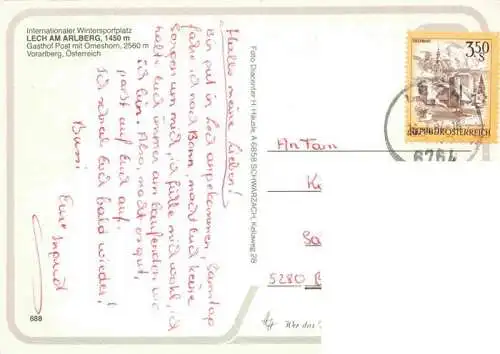 Internationaler Wintersportplatz
LECH AM ARLBERG, 1450 m
Gasthof Post mit Omeshorn, 2560 m
Vorarlberg, Österreich
Hallo meine Lieben!
Bin gut in Lech angekommen, Samstag
fahre ich nach Bonn, macht Euch keine
Sorgen um mich, ich fühle mich wohl, ich
halte Euch immer am Laufenden wo
ich bin. Also, macht es gut,
passt auf Euch auf.
Ich schreib Euch bald wieder!
Bussi
Eure
688
Foto Diacenter H. Häusle, A 6858 SCHWARZACH, Kellaweg 28
3.50
S
REPUBLIK ÖSTERREICH
6764
An Fam
K
Sa
5280 B
Wer das